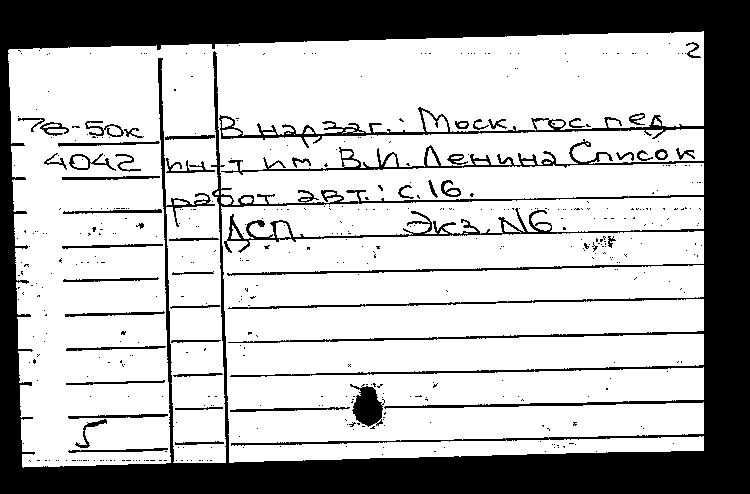 2
78-50к В надзаг.: Моск. гос. пед.
4042 ин-т им. В.И. Ленина Список
работ авт.: с. 16.
ДСП. Экз. N6.
5